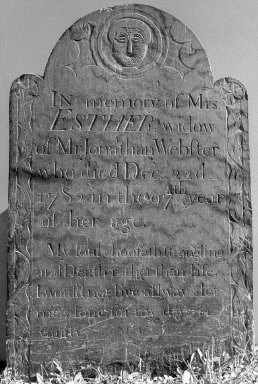 IN memory of Mrs
ESTHER, widow
of Mr. Jonathan Webster
who died Dec. 22d
1782 in the 97th year
of her age.
My soul chooseth strangling
and Death rather than life.
I would not live allways let
me alone for my days are
vanity